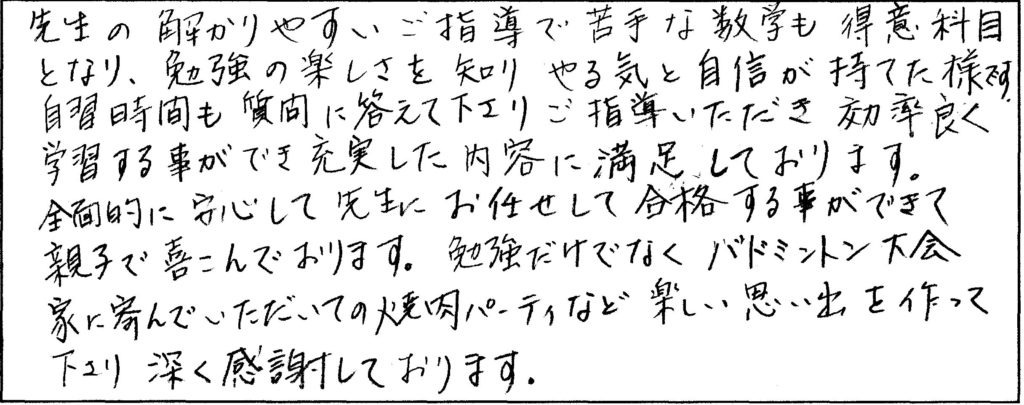 先生の解かりやすいご指導で苦手な数学も得意科目
となり、勉強の楽しさを知りやる気と自信が持てた様です。
自習時間も質問に答えて下さりご指導いただき効率良く
学習する事ができ充実した内容に満足しております。
全面的に安心して先生にお任せして合格する事ができて
親子で喜こんでおります。勉強だけでなくバドミントン大会
家に寄んでいただいての焼肉パーティなど楽しい思い出を作って
下さり深く感謝しております。